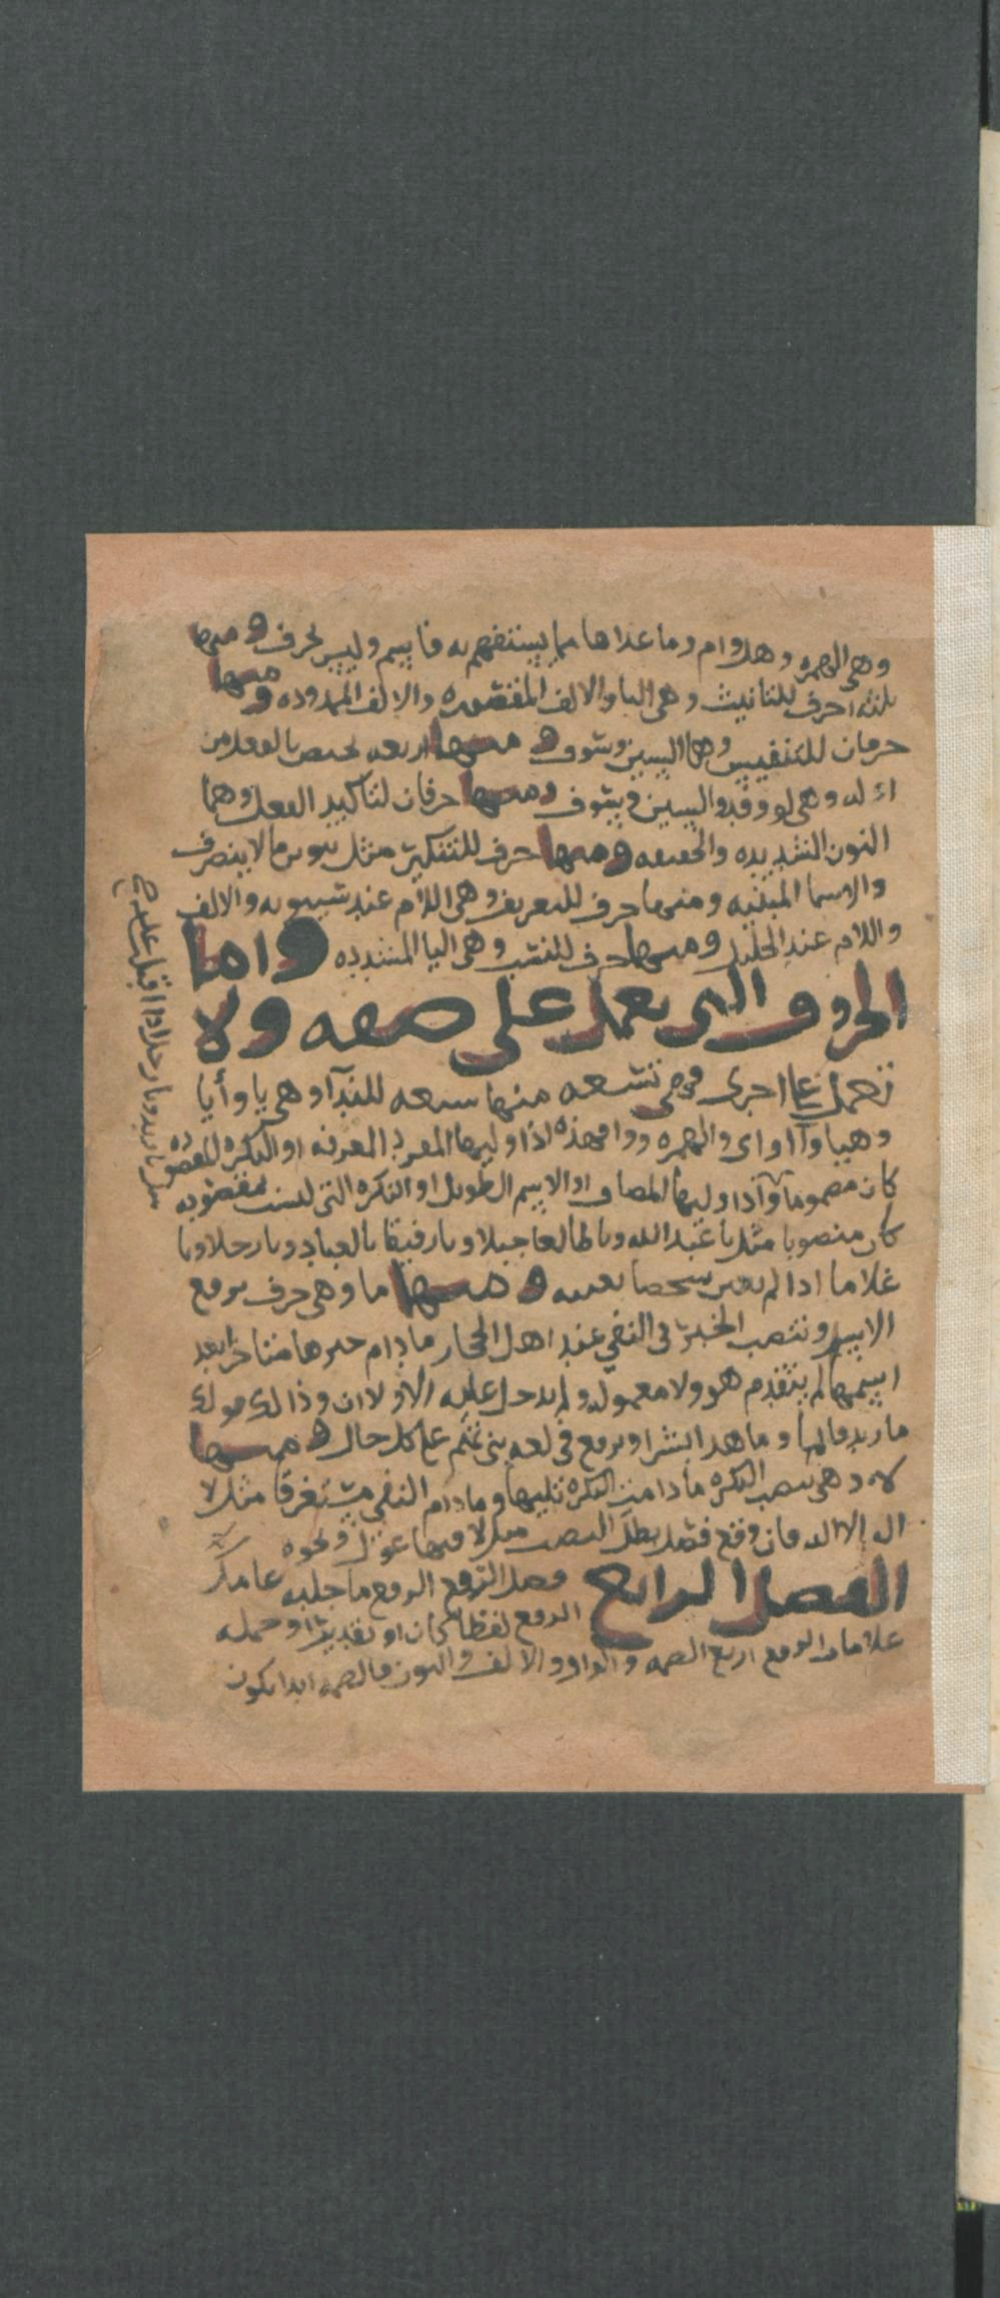 وهي الهمزه وهل وام وما عداها مما يستفهم به فاسم وليس بحرف ومنها
ثلثه احرف للتانيث وهي التا والالف المقصوره والالف الممدوده ومنها
حرفان للتنفيس وهما السين وسوف ومنها اربعه تختص بالفعل من
اوله وهي لو وقد والسين وسوف ومنها حرفان لتاكيد الفعل وهما
النون الشديده والخفيفه ومنها حرف للتنكير مثل تنوين ما لا ينصرف
والاسما المبنيه ومنها حرف للتعريف وهي اللام عند سيبويه والالف
واللام عند الخليل ومنها حرف للنسب وهي اليا المشدده واما
الحروف التي تعمل على صفه ولا
تعمل على اخرى فهي تسعه منها سبعه للندآ وهي يا وأيا
وهيا وآ او اى والهمزه ووا فهذه اذا وليها المفرد المعرفه او النكره المقصوده
كان مضموما وآذا وليها المضاف او الاسم الطويل او النكره التي ليست مقصوده
كان منصوبا مثل يا عبد الله ويا طالعا جبلا ويا رفيقا بالعباد ويا رجلا ويا
غلاما اذا لم تعين شخصا بعينه ومنها ما وهي حرف يرفع
الاسم وتنصب الخبر في النفي عند اهل الحجاز ما دام خبرها متاخرا بعد
اسمها لم يتقدم هو ولا معموله ولم يدخل عليه الا ولا ان وذالك قولك
ما زيد قائما وما هذا بشرا ويرفع في لغه بني تميم على كل حال ومنها
لا وهي تنصب النكره ما دامت النكره تليها وما دام النفي مستغرقا مثل لا
اله الا الله فان وقع فصل بطل النصب مثل لا فيها غول ونحوه
الفصل الرابع فصل الرفع الرفع ما جلبه عامل
الرفع لفظا كان او تقديرا وجمله
علامات الرفع اربع الضمه والواو والالف والنون فالضمه ابدا تكون
مثل يا زيد ويا رجل اذا اقبل عليه صح